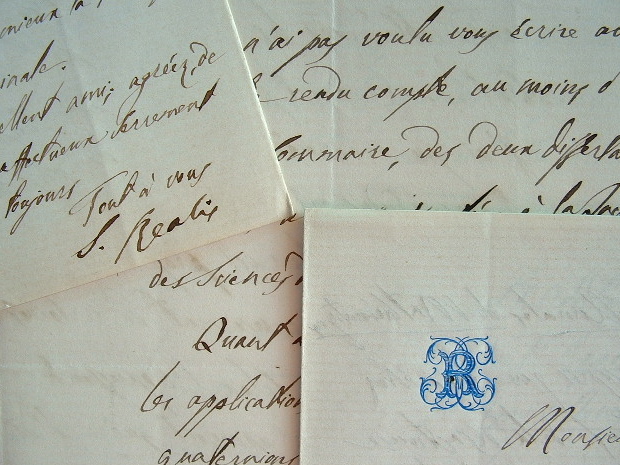 mieux la
inale.
ellent ami, agréez, de
affectueux serrement
toujours
Tout à vous
S. Realis
n'ai pas voulu vous écrire
rendu compte, au moins d
sommaire, des deux disserta
à la
des Sciences
Quant
les application
quaternions
R
Monsieu